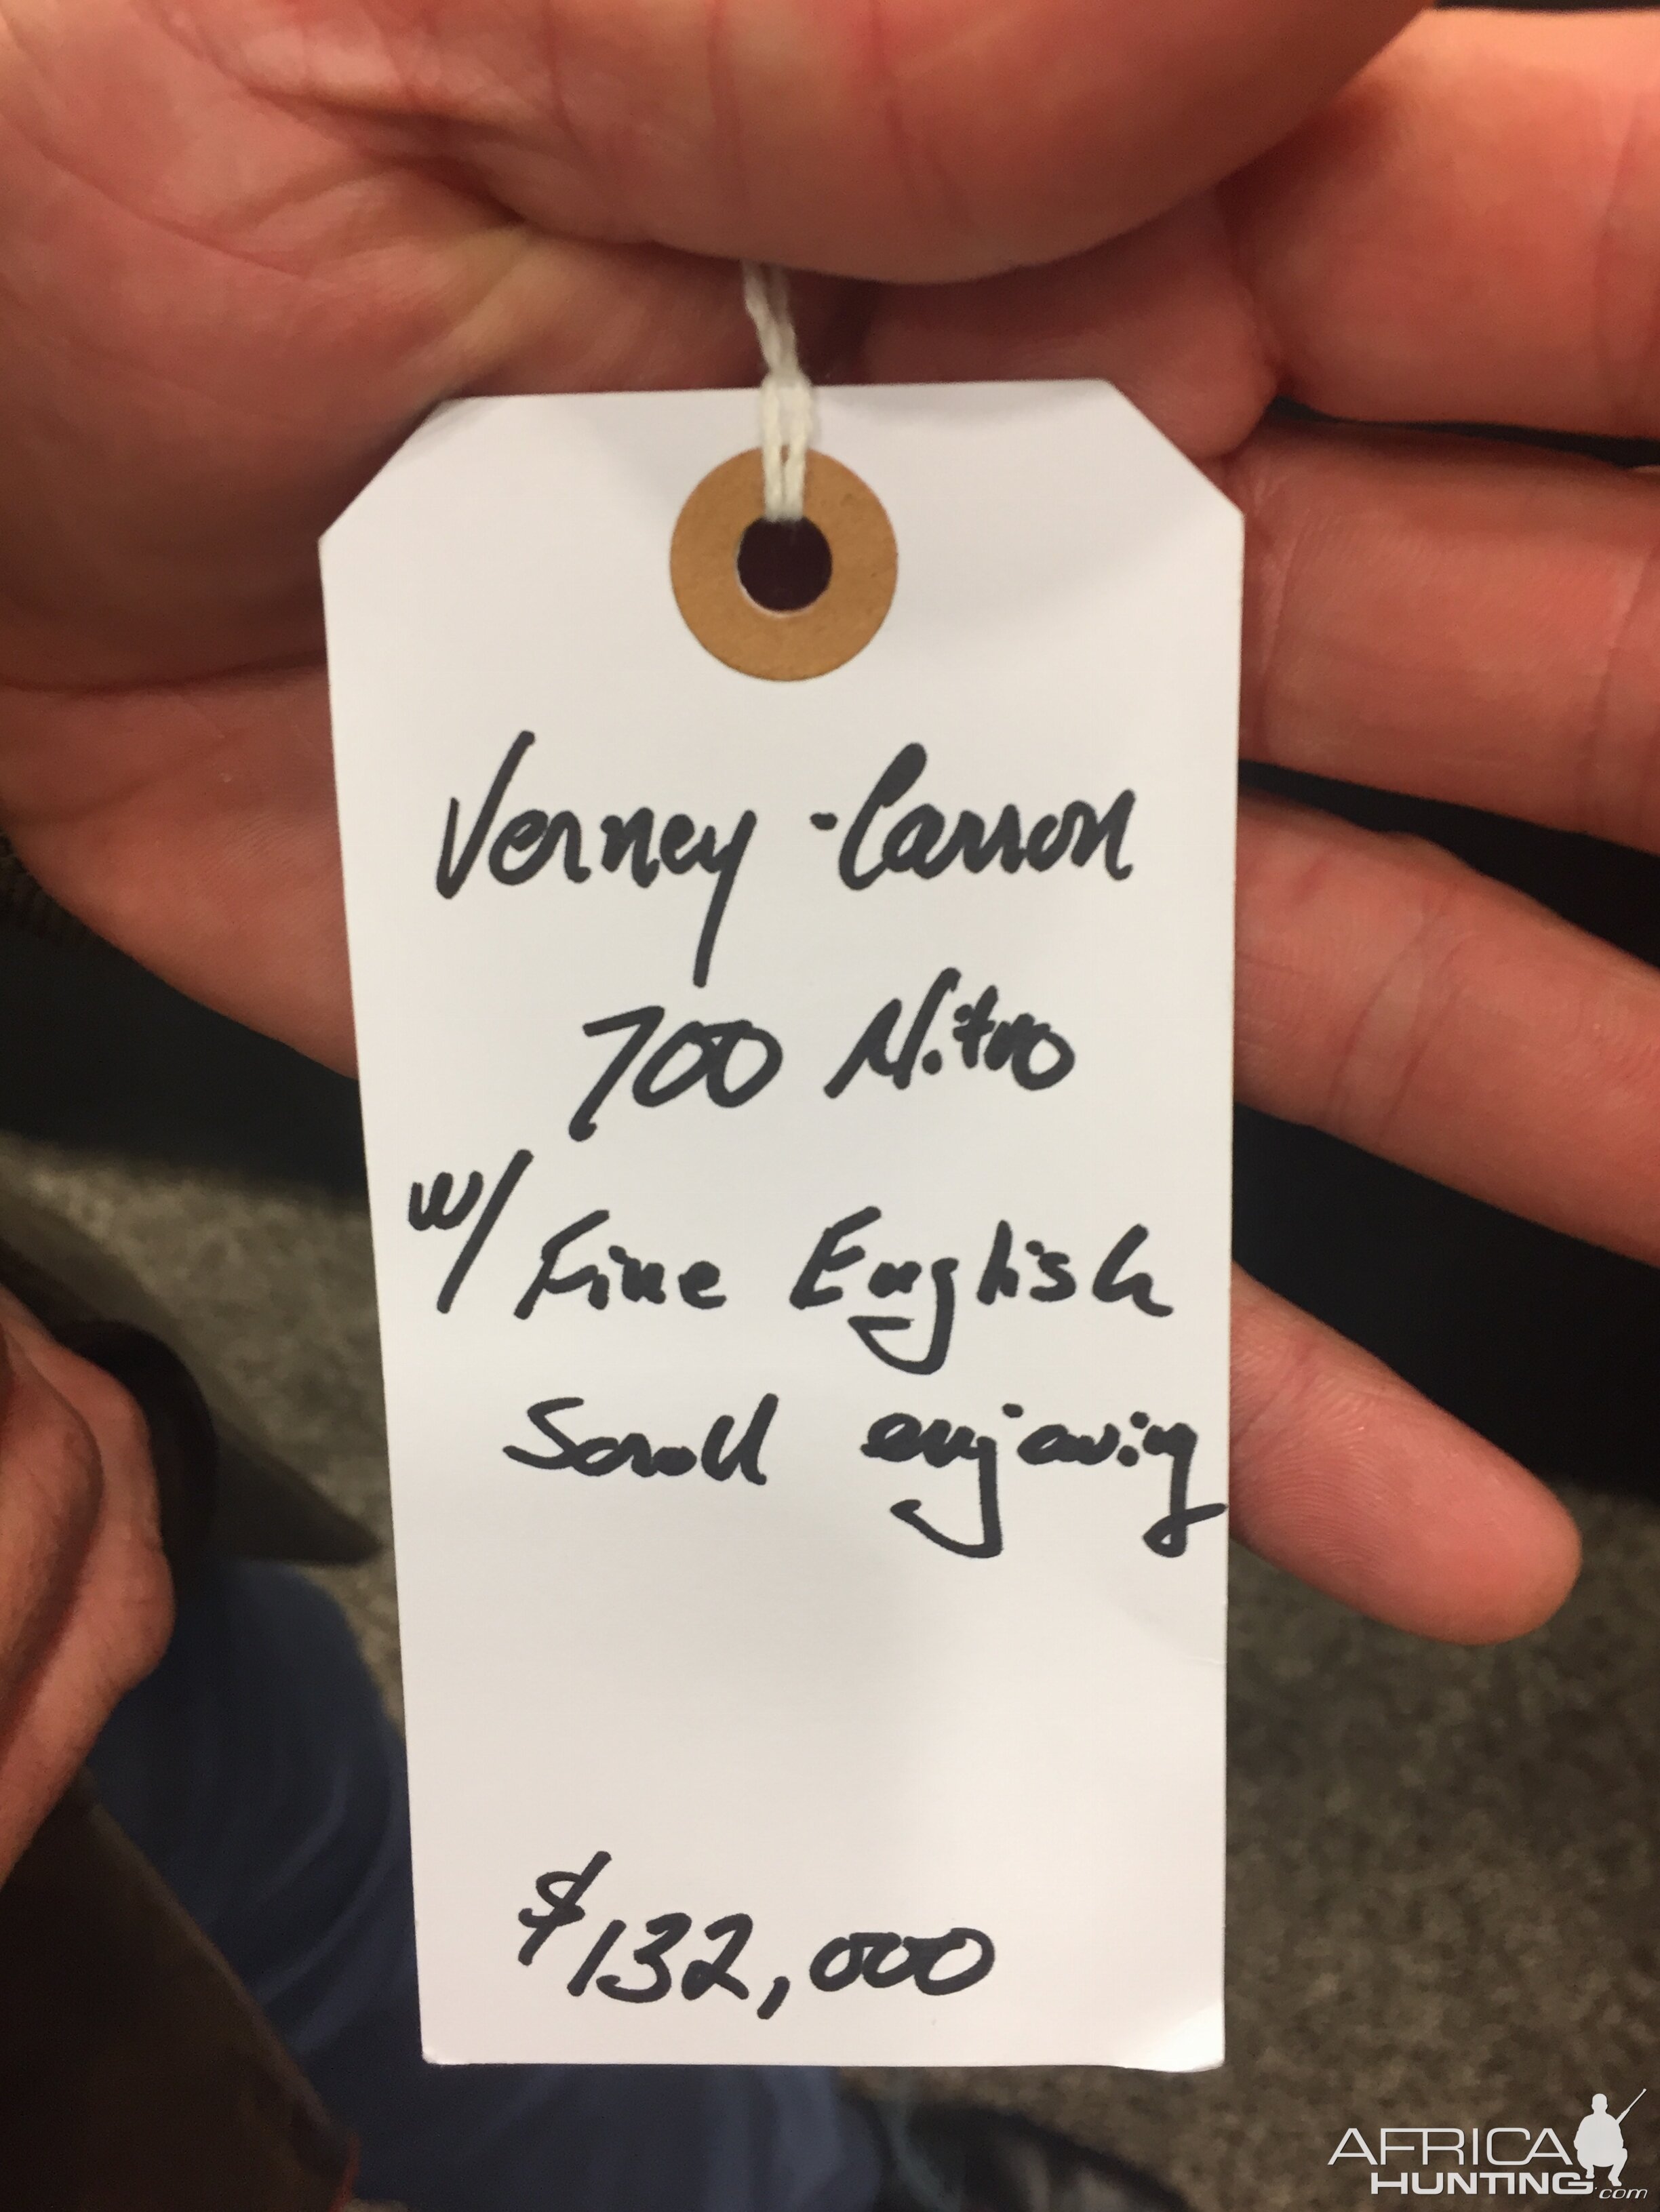 Verney-Carron
700 Nitro
w/ Fine English
Scroll engraving
$132,000
AFRICA
HUNTING.com